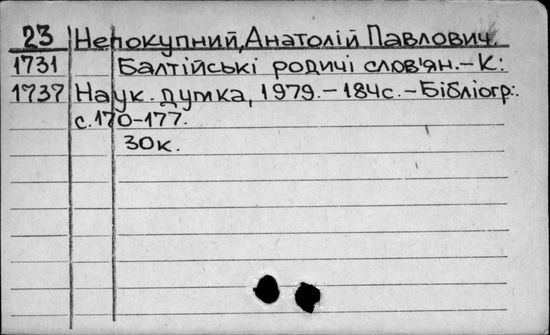 23 Непокупний, Анатолій Павлович.
1731 Балтійські родичі слов'ян. – К.:
1737 Наук. думка, 1979. – 184с. – Бібліогр.:
с. 170-177.
30к.